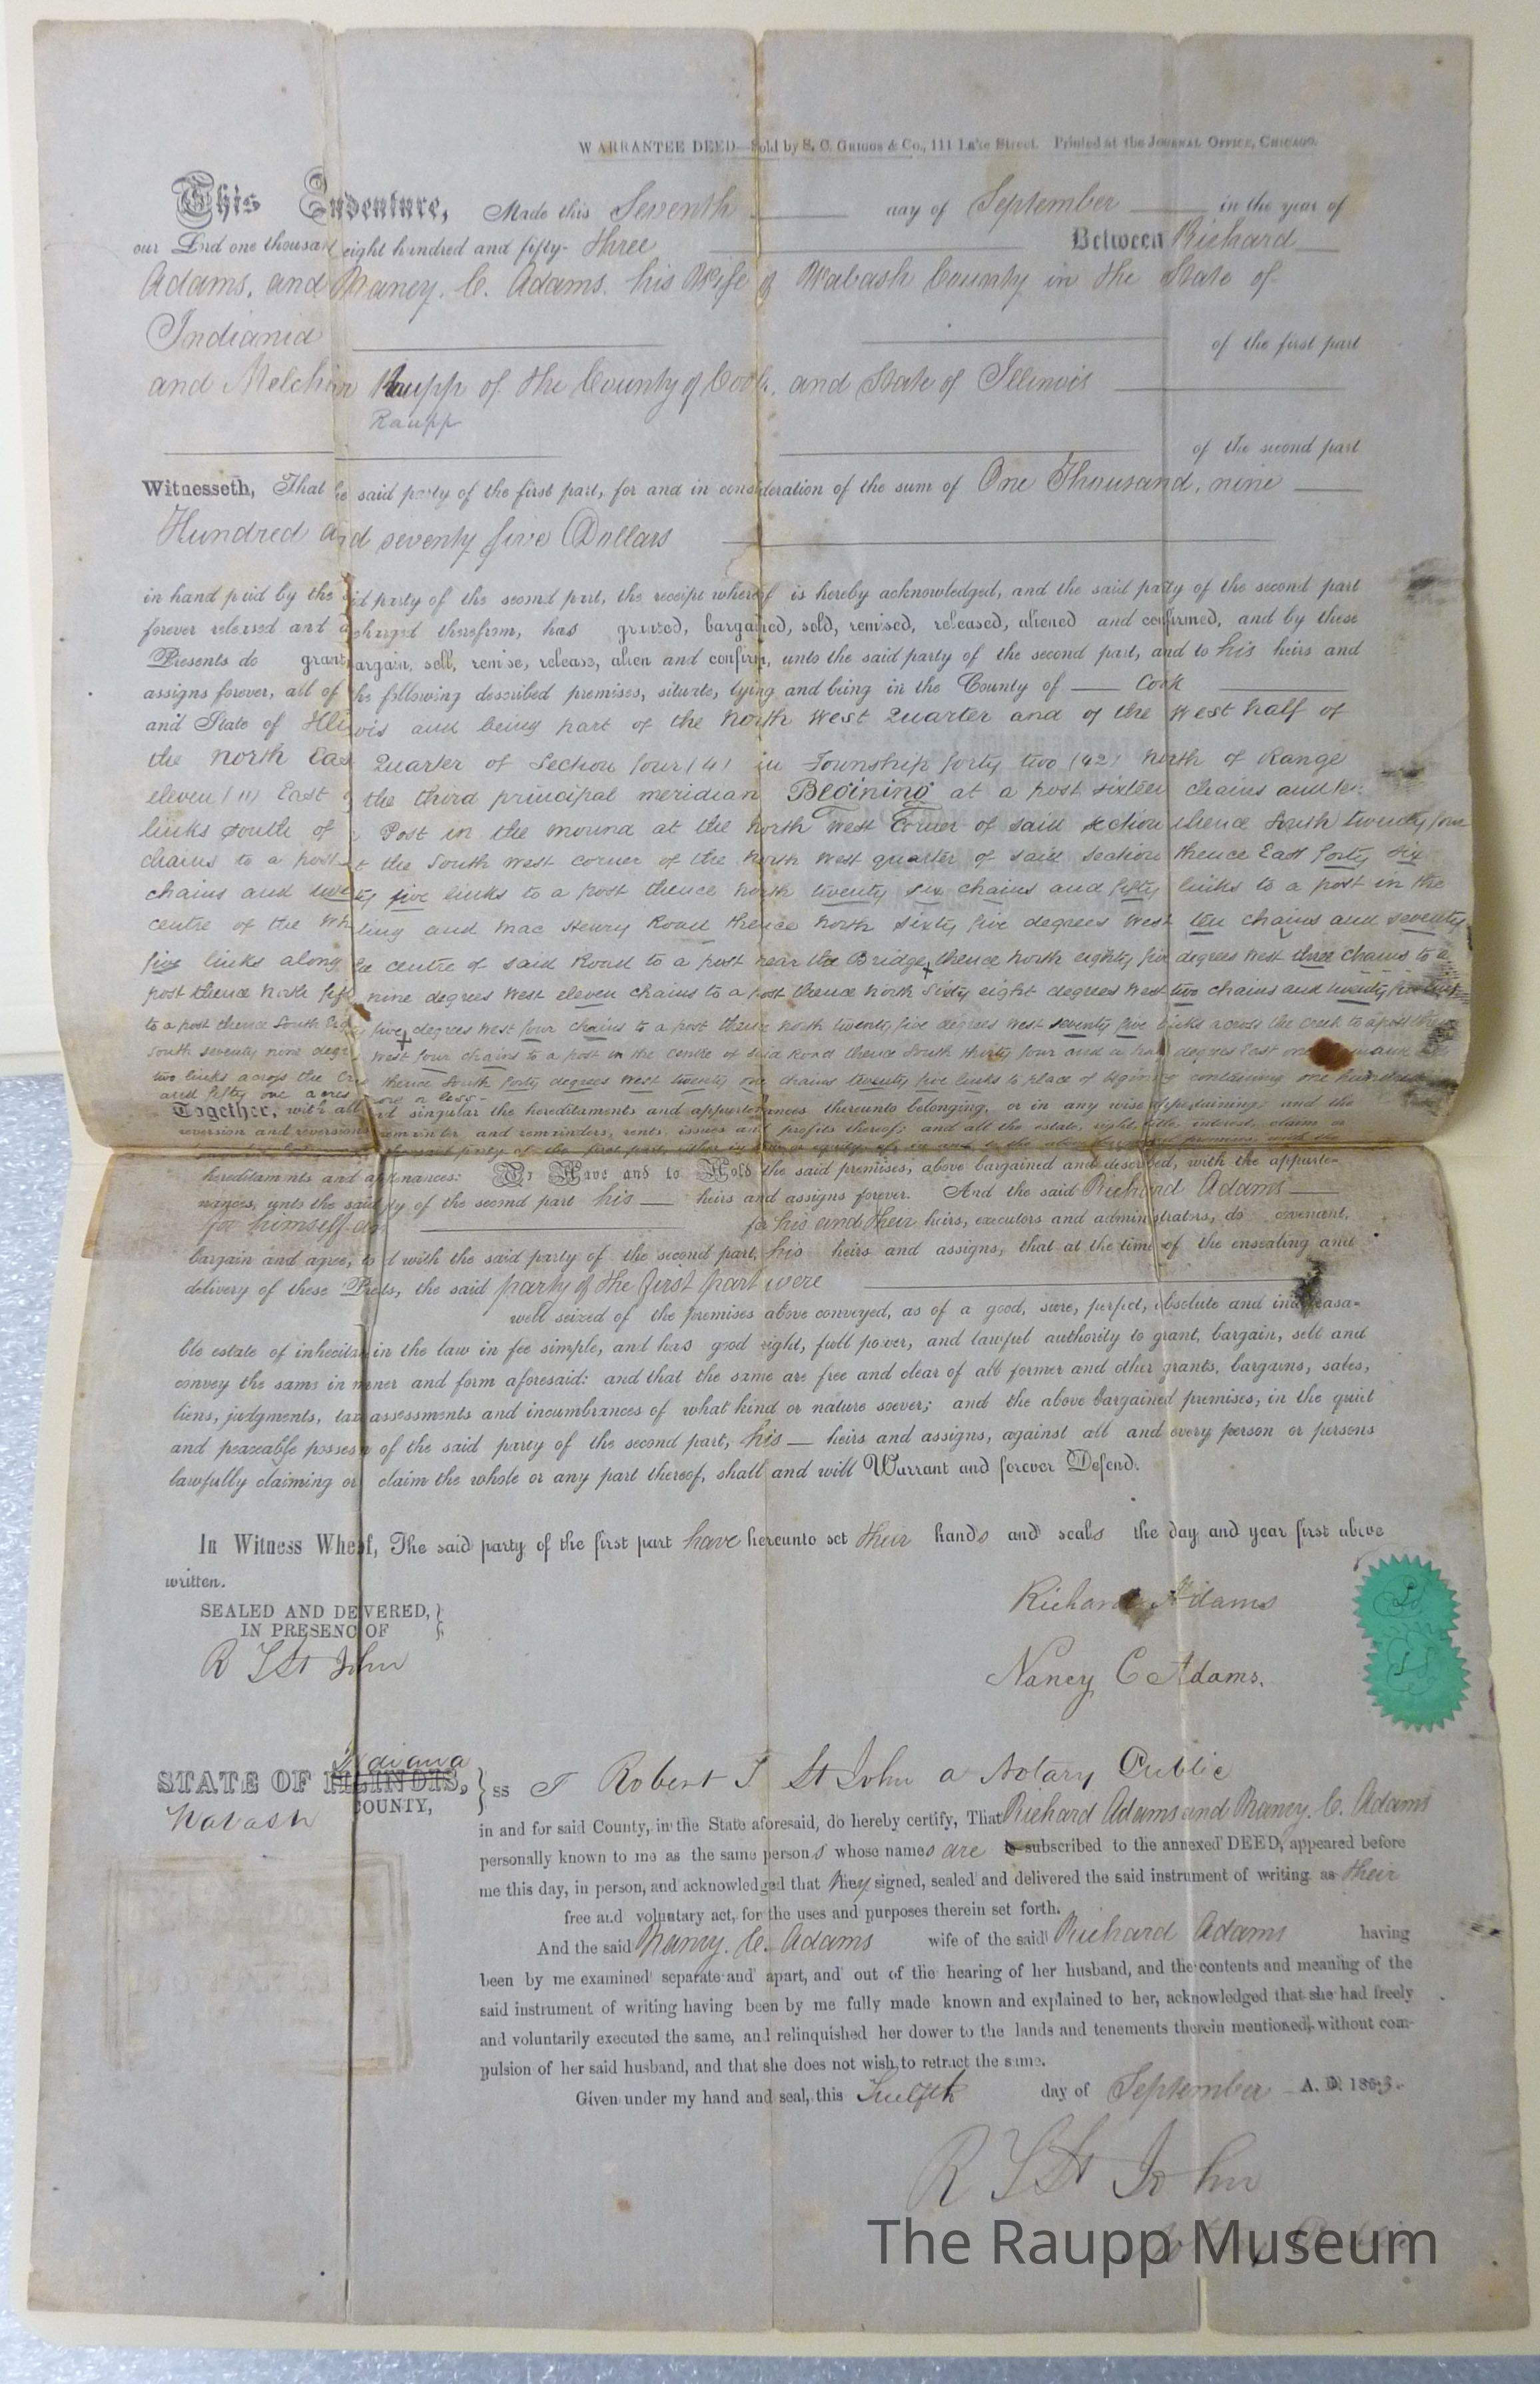 WARRANTEE DEED—Sold by S. C. GRIGGS & Co., 111 Lake Street. Printed at the JOURNAL OFFICE, CHICAGO.
This Indenture, Made this Seventh day of September in the year of
our Lord one thousand eight hundred and fifty- three Between Richard
Adams, and Nancy. C. Adams. his Wife of Wabash County in the State of
Indiania of the first part
and Melchior Raupp of the County of Cook, and State of Illinois
Raupp
of the second part
Witnesseth, That the said party of the first part, for and in consideration of the sum of One Thousand, nine
Hundred and seventy five Dollars
in hand paid by the said party of the second part, the receipt whereof is hereby acknowledged, and the said party of the second part
forever released and discharged therefrom, has granted, bargained, sold, remised, released, aliened and confirmed, and by these
Presents do grant, bargain, sell, remise, release, alien and confirm, unto the said party of the second part, and to his heirs and
assigns forever, all of the following described premises, situate, lying and being in the County of Cook
and State of Illinois and being part of the North West Quarter and of the West half of
the North East Quarter of Section four (4) in Township forty two (42) North of Range
eleven (11) East of the third principal meridian Begining at a post sixteen chains and ten
links South of Post in the mound at the North West Corner of said section thence South twenty four
chains to a post at the South West corner of the North West quarter of said section thence East forty six
chains and twenty five links to a post thence North twenty six chains and fifty links to a post in the
centre of the Wheeling and Mac Henry Road thence North sixty five degrees West ten chains and seventy
five links along the centre of said Road to a post near the Bridge thence North eighty five degrees West three chains to a
post thence North fifty nine degrees West eleven chains to a post thence North sixty eight degrees West two chains and twenty five links
to a post thence South eighty five degrees West four chains to a post thence North twenty five degrees West seventy five links across the creek to a post thence
South seventy nine degrees West four chains to a post in the centre of said Road thence South thirty four and a half degrees East one
two links across the Creek thence South forty degrees West twenty one chains twenty five links to place of begining containing one hundred
and fifty one acres more or less-
Together, with all and singular the hereditaments and appurtenances thereunto belonging, or in any wise appertaining, and the
reversion and reversions, remainder and remainders, rents, issues and profits thereof; and all the estate, right, title, interest, claim or
the said party of the first part, either in law or equity, of, in and to the above bargained premises, with the
hereditaments and appurtenances: To Have and to Hold the said premises, above bargained and described, with the appurte-
nances, unto the said party of the second part his heirs and assigns forever. And the said Richard Adams
for himself do for his and their heirs, executors and administrators, do covenant,
bargain and agree, to and with the said party of the second part, his heirs and assigns, that at the time of the ensealing and
delivery of these Presents, the said party of the first part were
well seized of the premises above conveyed, as of a good, sure, perfect, absolute and indefeasa-
ble estate of inheritance in the law in fee simple, and has good right, full power, and lawful authority to grant, bargain, sell and
convey the same in manner and form aforesaid: and that the same are free and clear of all former and other grants, bargains, sales,
liens, judgments, taxes, assessments and incumbrances of what kind or nature soever; and the above bargained premises, in the quiet
and peaceable possession of the said party of the second part, his heirs and assigns, against all and every person or persons
lawfully claiming or to claim the whole or any part thereof, shall and will Warrant and forever Defend.
In Witness Whereof, The said party of the first part have hereunto set their hands and seals the day and year first above
written.
SEALED AND DELIVERED,
IN PRESENCE OF
R T St John
Richard Adams
Nancy C Adams.
Indiana
STATE OF ILLINOIS, ss I Robert T St John a Notary Public
Wabash COUNTY,
in and for said County, in the State aforesaid, do hereby certify, That Richard Adams and Nancy. C. Adams
personally known to me as the same persons whose names are subscribed to the annexed DEED, appeared before
me this day, in person, and acknowledged that they signed, sealed and delivered the said instrument of writing as their
free and voluntary act, for the uses and purposes therein set forth.
And the said Nancy. C. Adams wife of the said Richard Adams having
been by me examined separate and apart, and out of the hearing of her husband, and the contents and meaning of the
said instrument of writing having been by me fully made known and explained to her, acknowledged that she had freely
and voluntarily executed the same, and relinquished her dower to the lands and tenements therein mentioned, without com-
pulsion of her said husband, and that she does not wish to retract the same.
Given under my hand and seal, this Twelfth day of September A. D. 1853.
R T St John
Notary Public
The Raupp Museum